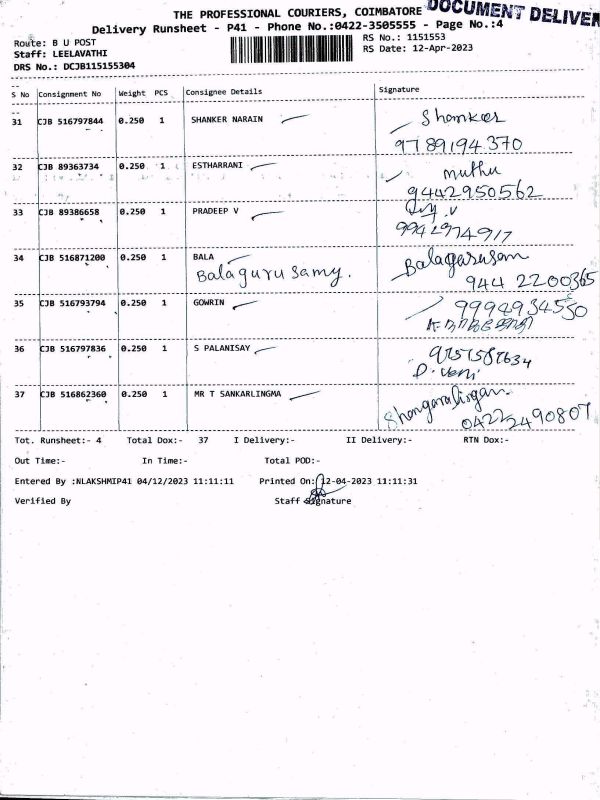 THE PROFESSIONAL COURIERS, COIMBATORE
DOCUMENT DELIVER
Delivery Runsheet - P41 - Phone No.:0422-3505555 - Page No.:4
Route: B U POST
RS No.: 1151553
Staff: LEELAVATHI
RS Date: 12-Apr-2023
DRS No.: DCJB115155304
S No Consignment No Weight PCS Consignee Details Signature
31 CJB 516797844 0.250 1 SHANKER NARAIN Shanker
9789194370
32 CJB 89363734 0.250 1 ESTHARRANI muthu
9442950562
33 CJB 89386658 0.250 1 PRADEEP V
9942974917
34 CJB 516871200 0.250 1 BALA
Balagurusamy.
944 2200365
35 CJB 516793794 0.250 1 GOWRIN 9994934550
36 CJB 516797836 0.250 1 S PALANISAY 9757587634
37 CJB 516862360 0.250 1 MR T SANKARLINGMA
04222490807
Tot. Runsheet:- 4 Total Dox:- 37 I Delivery:- II Delivery:- RTN Dox:-
Out Time:- In Time:- Total POD:-
Entered By :NLAKSHMIP41 04/12/2023 11:11:11 Printed On: 12-04-2023 11:11:31
Verified By Staff Signature